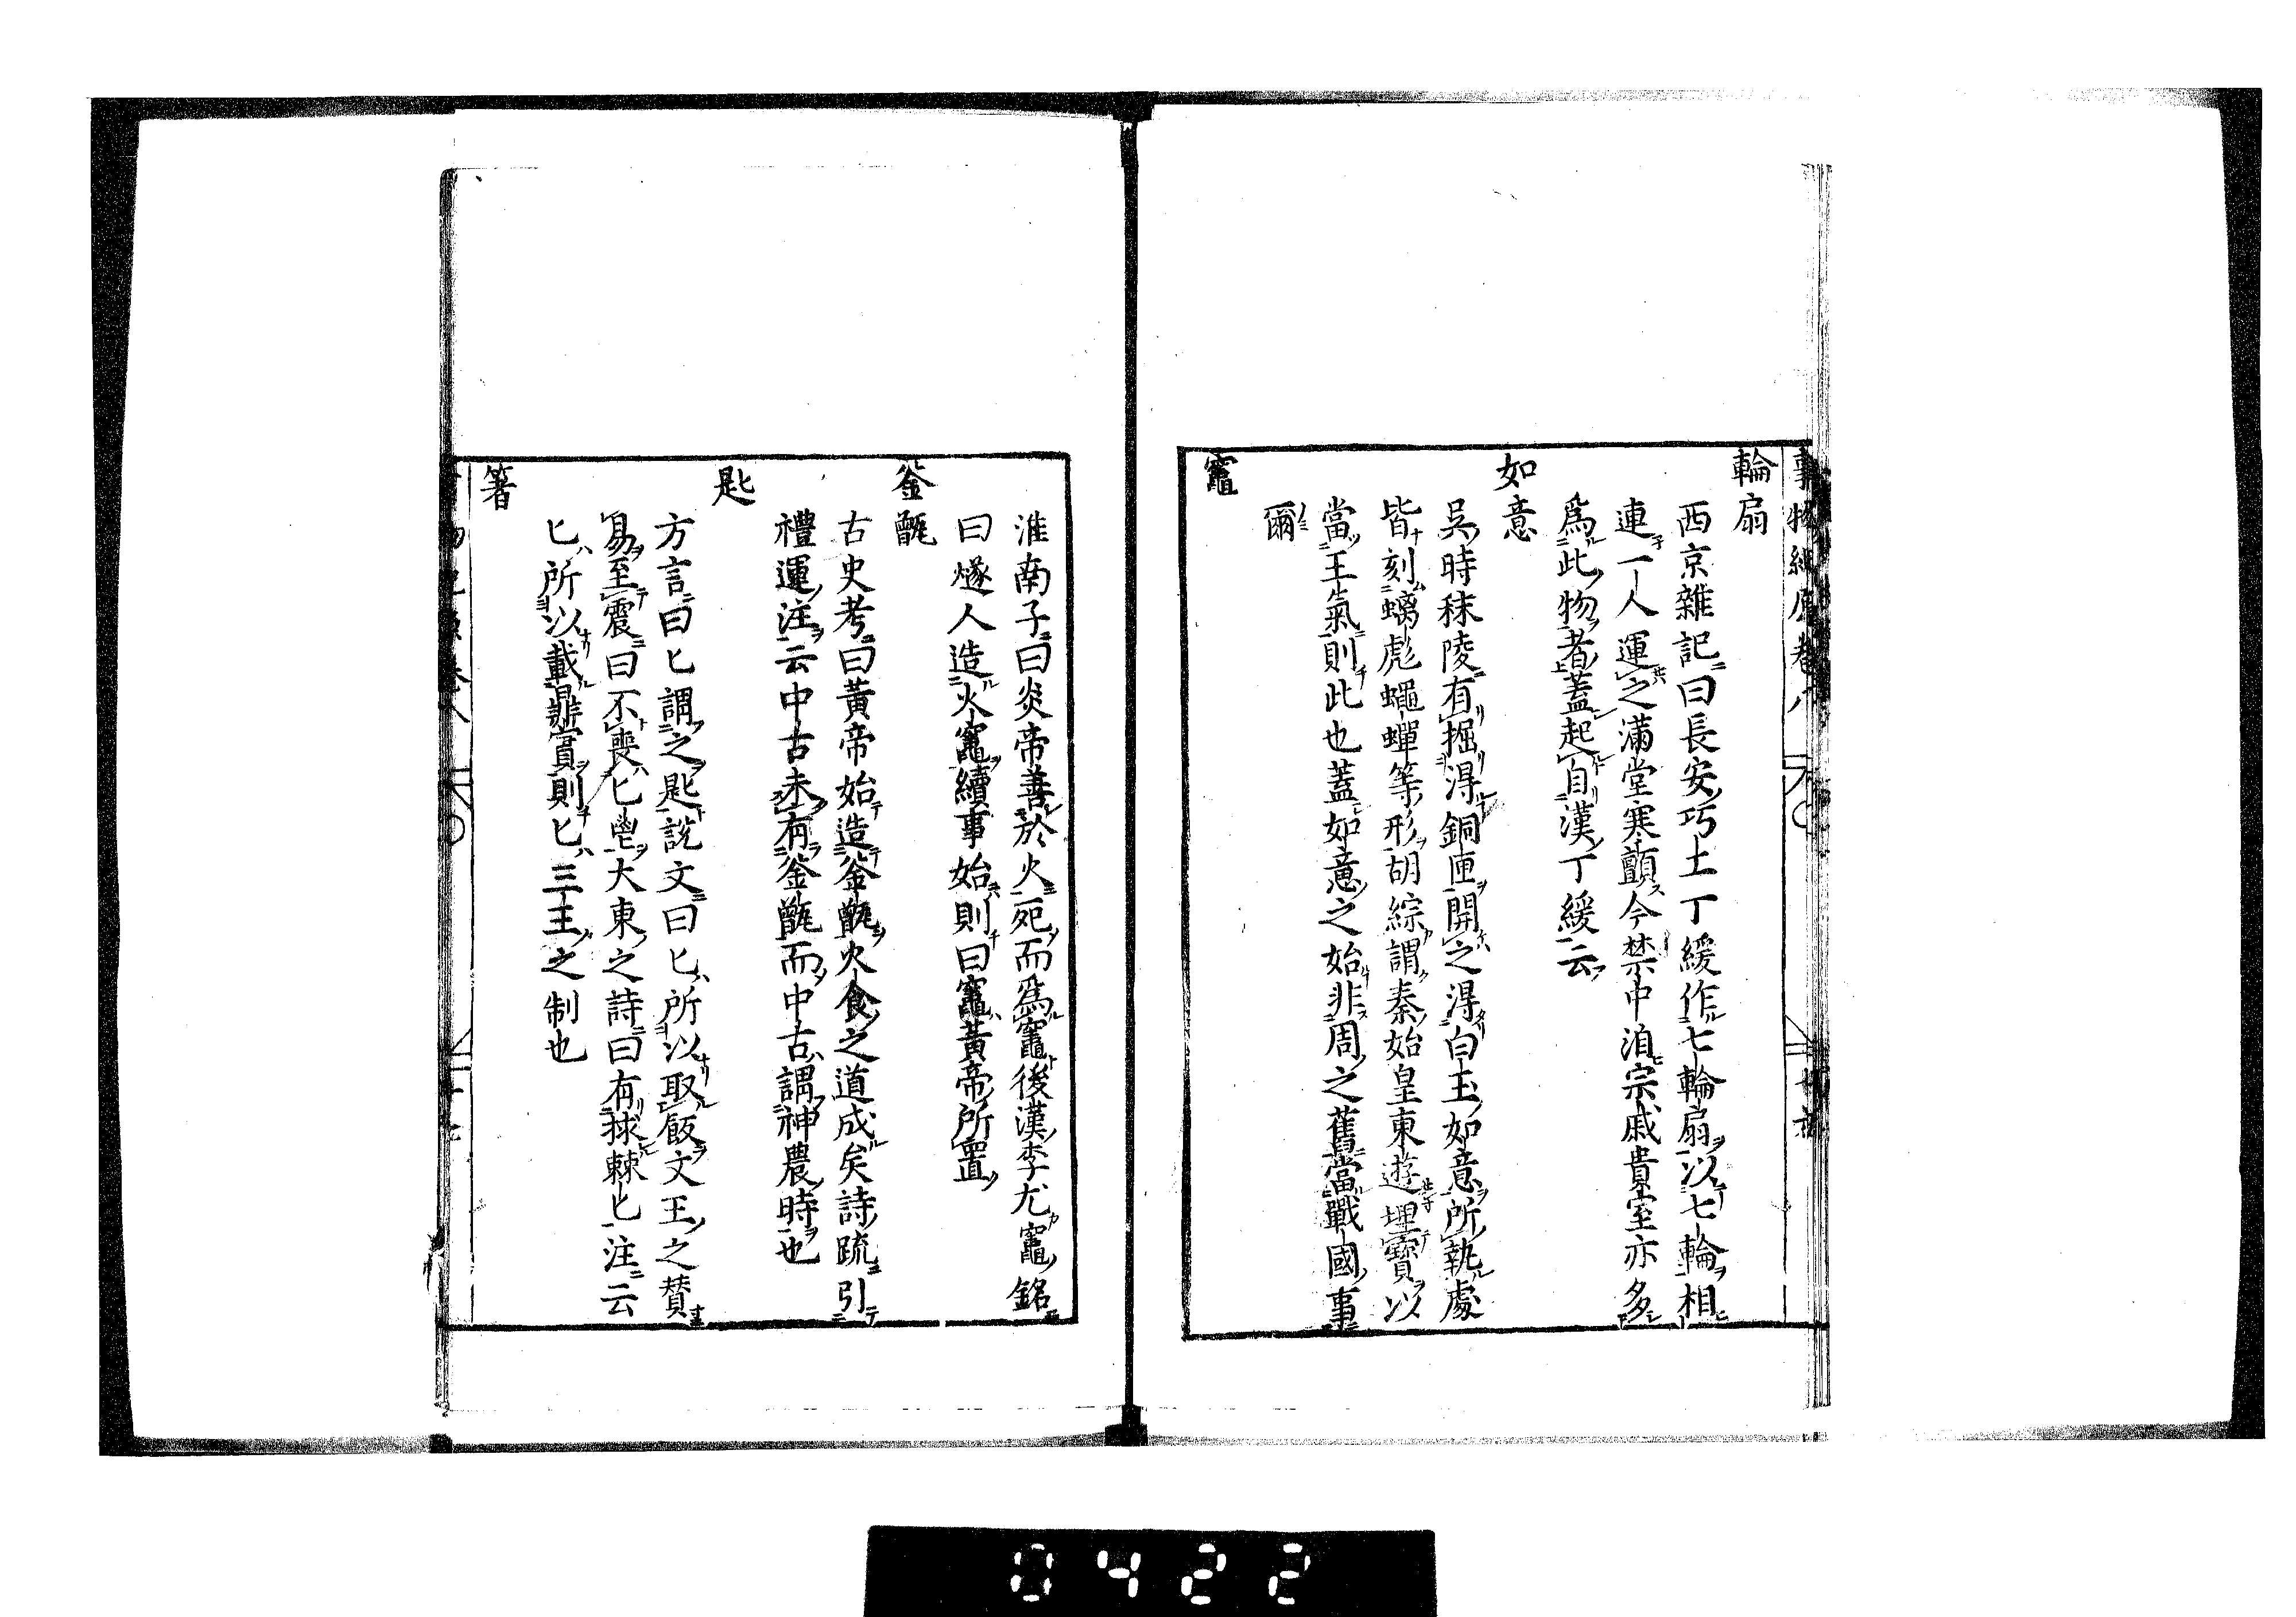 輪扇
西京雜記曰長安巧土丁緩作七輪扇以七輪相
連一人運之滿堂寒顫今禁中洎宗戚貴室亦多
爲此物者蓋起自漢丁緩云
如意
吳時秣陵有掘淂銅匣開之淂白玉如意所執處
皆刻螭彪蠅蟬等形胡綜謂秦始皇東遊埋寶以
當王氣則此也蓋如意之始非周之舊當戰國事
爾
竈
淮南子曰炎帝善於火死而爲竈後漢李尤竈銘
曰燧人造火竈續事始則曰竈黃帝所置
釜甑
古史考曰黃帝始造釜甑火食之道成矣詩疏引
禮運注云中古未有釜甑而中古謂神農時也
匙
方言曰匕謂之匙說文曰匕所以取飯文王之贊
易至震曰不喪匕鬯大東之詩曰有捄棘匕注云
匕所以載鼎實則匕三王之制也
箸
0422